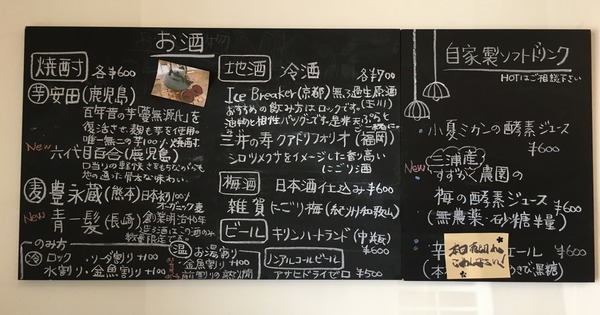 お酒
焼酎 各¥600
芋 安田(鹿児島)
百年昔の芋「蔓無源氏」を
復活させ、麹も芋を使用。
唯一無二の芋100%焼酎
New 六代目百合(鹿児島)
麦 豊永蔵(熊本)日本初100%
オーガニック麦
New 青一髪(長崎)創業明治40年
のみ方
冷 ロック・ソーダ割り+100
水割り・金魚割り+100
温 お湯割り
金魚割り+100
地酒 冷酒 各¥700
Ice Breaker(京都)無ろ過生原酒
おすすめの飲み方はロックです。(玉川)
三井の寿 クアドリフォリオ(福岡)
シロツメクサをイメージした香り高い
にごり酒
梅酒 日本酒仕込み ¥600
雑賀 にごり梅(紀州和歌山)
ビール キリンハートランド(中瓶)
¥600
ノンアルコールビール
アサヒドライゼロ ¥500
自家製ソフトドリンク
HOTはご相談下さい
小夏ミカンの酵素ジュース
¥600
New 三浦産
すずなり農園の
梅の酵素ジュース
(無農薬・砂糖半量) ¥600
エール ¥600
きび黒糖)